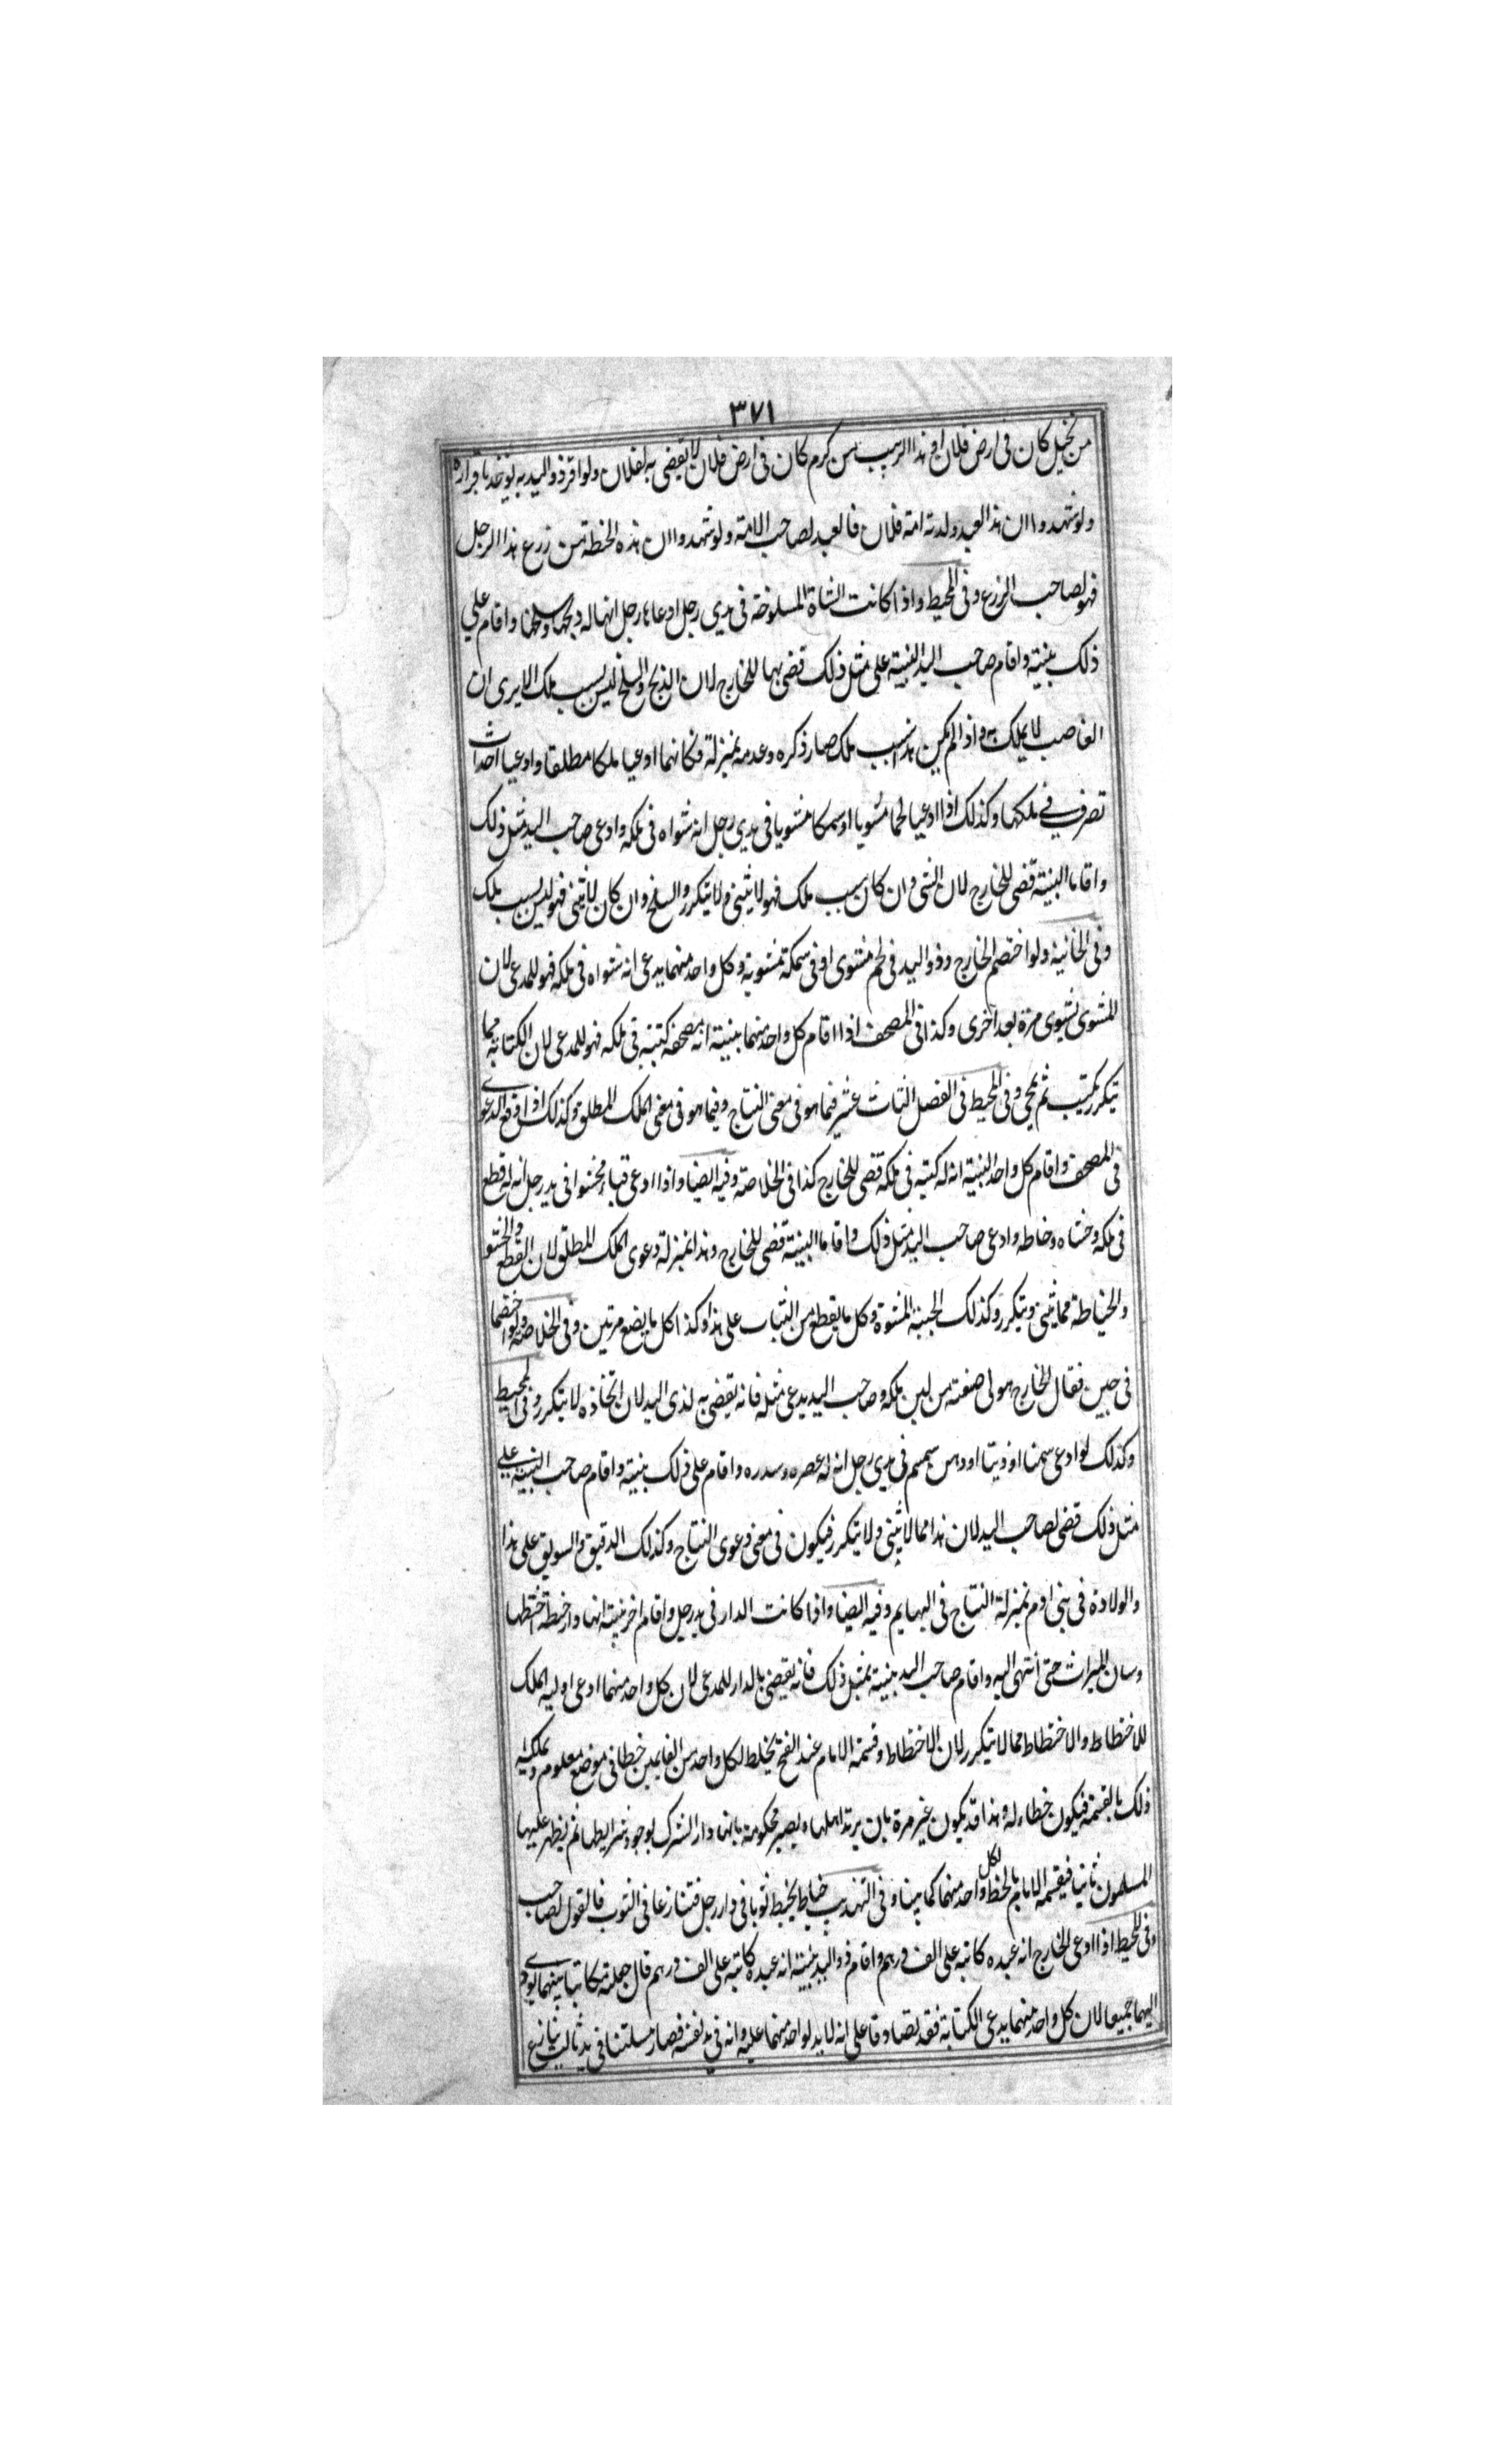 ٣٧١
من نخيل كان فى ارض فلان او هذا الزبيب من كرم كان فى ارض فلان لا يقضى به لفلان ولو اقر ذو اليد به يوخذ باقراره
ولو شهدوا ان هذا العبد ولدته امة فلان فالعبد لصاحب الامة ولو شهدوا ان هذه الحنطة من زرع هذا الرجل
فهو لصاحب الزرع وفى المحيط واذا كانت الشاة المسلوخة فى يدي رجل ادعاها رجل انها له ذبحها وسلخها واقام علي
ذلك بينة واقام صاحب اليد البينة على مثل ذلك قضى بها للخارج لان الذبح والسلخ ليس بسبب ملك الا يرى ان
الغاصب لا يملك به واذا لم يكن هذا سبب ملك صار ذكره وعدمه بمنزلة فكانهما ادعيا ملكا مطلقا وادعيا احداث
تصرف في ملكها وكذلك اذا ادعيا لحما مشويا او سمكا مشويا فى يدي رجل انه شواه فى ملكه وادعى صاحب اليد مثل ذلك
واقاما البينة قضى للخارج لان الشى وان كان سبب ملك فهو لا يثنى ولا يتكرر والسلخ وان كان لا يثنى فهو ليس بسبب ملك
وفى الخانية ولو اختصم الخارج وذو اليد فى لحم مشوى او فى سمكة مشوية وكل واحد منهما يدعى انه شواه فى ملكه فهو للمدعى لان
المشوى يشوى مرة بعد اخرى وكذا فى المصحف اذا اقام كل واحد منهما بينة انه مصحفه كتبه فى ملكه فهو للمدعى لان الكتابة مما
يتكرر يكتب ثم يمحى وفى المحيط فى الفصل الثالث عشر فيما هو فى معنى النتاج وفيما هو فى معنى الملك المطلق وكذلك اذا وقع الدعوى
فى المصحف واقام كل واحد البينة انه له كتبه فى ملكه قضى للخارج كذا فى الخلاصة وفيه ايضا واذا ادعى قباء محشوا فى يد رجل انه له قطع
فى ملكه وحشاه وخاطه وادعى صاحب اليد مثل ذلك واقاما البينة قضى للخارج وهذا بمنزلة دعوى الملك المطلق لان القطع والحشو
والخياطة مما يثنى ويتكرر وكذلك الجبة المحشوة وكل ما يقطع من الثياب على هذا وكذا كل ما يصنع مرتين وفى الخلاصة ولو اختصما
فى جبن فقال الخارج هو لى صنعته من لبن ملكه وصاحب اليد يدعى مثله فانه يقضى به لذى اليد لان اتخاذه لا يتكرر وفى المحيط
وكذلك لو ادعى سمنا او زيتا او دهن سمسم فى يدي رجل انه له عصره وسدره واقام على ذلك بينة واقام صاحب البينة علي
مثل ذلك قضى لصاحب اليد لان هذا مما لا يثنى ولا يتكرر فيكون فى معنى دعوى النتاج وكذلك الدقيق والسويق على هذا
والولادة فى بنى ادم بمنزلة النتاج فى البهايم وفيه ايضا واذا كانت الدار فى يد رجل واقام اخر بينة انها دار خطة اختطها
وسان الميراث حتى انتهى اليه واقام صاحب اليد بينة بمثل ذلك فانه يقضى بالدار للمدعى لان كل واحد منهما ادعى اولية الملك
للاختطاط والاختطاط مما لا يتكرر لان الاختطاط وقسمة الامام عند الفتح يخلط لكل واحد من الغانمين خطا فى موضع معلوم ويملكه
ذلك بالقسمة فيكون خطاء له وهذا قد يكون غير مرة بان يرتد اهلها ويصير محكومة بانها دار الشرك بوجود شرايطها ثم يظهر عليها
المسلمون ثانيا فيقسمه الامام بالخط لكل واحد منهما كما بينا وفى التهذيب خياط يخيط ثوبا فى دار رجل فتنازعا فى الثوب فالقول لصاحب
وفى المحيط اذا ادعى الخارج انه عبده كاتبه على الف درهم واقام ذو اليد بينة انه عبده كاتبه على الف درهم قال جعلته مكاتبا بينهما يودى
اليهما جميعا لان كل واحد منهما يدعى الكتابة فقد تصادقا على انه لا يد لواحد منهما عليه وانه فى يد نفسه فصار مسلتنا فى يد ثالث تنازع